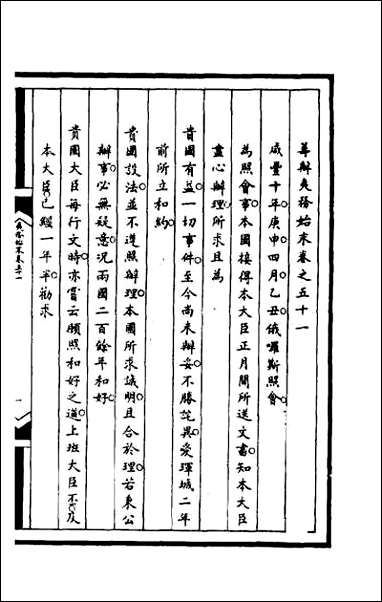 籌辦夷務始末卷之五十一
咸豐十年庚申四月乙丑俄囉斯照會
為照會事本國接得本大臣正月間所送文書知本大臣
盡心辦理所求且為
貴國有益一切事件至今尚未辦妥不勝詫異愛琿城二年
前所立和約
貴國設法並不遵照辦理本國所求誠明且合於理若秉公
辦事必無疑意況兩國二百餘年和好
貴國大臣每行文時亦嘗云願照和好之道上班大臣不以
本大臣已經一年半勸求
夷務始末卷五十一
一